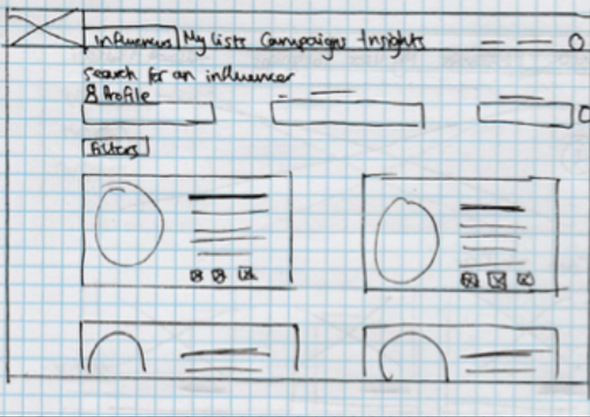 Influencers My Lists Campaigns Insights
Search for an influencer
Profile
Filters